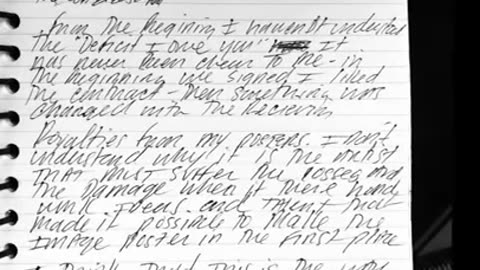 From the Begining I haven't understood
the "Deficit I owe you" It
has never been clear to me - in
the beginning we signed I liked
the contract - then something was
changed with the Recieving
Royalties from my posters. I don't
understand why it is the artist
that must suffer the losses and
the Damage when it there hand
work. Ideas. and Talent that
made it possible to make the
Image poster in the first place
I think that this is the way